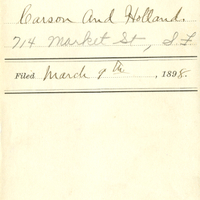 Carson And Holland.
714 Market St, S.F
Filed March 9th, 1898.